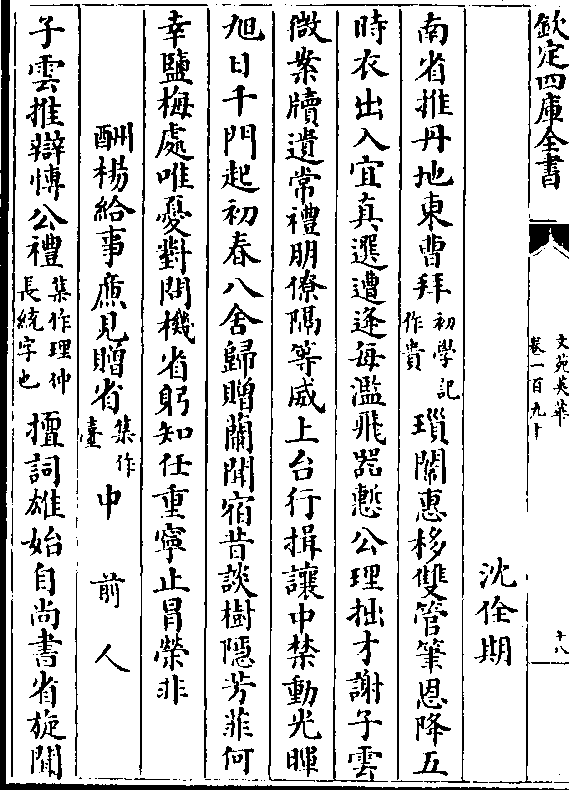 欽定四庫全書
文苑英華
卷一百九十
十八
沈佺期
南省推丹地東曹拜初學記作貴瑣闈惠移雙管筆恩降五
時衣出入宜真選遭逢每濫飛器慙公理拙才謝子雲
微案牘遺常禮朋僚隔等威上台行揖讓中禁動光暉
旭日千門起初春八舍歸贈蘭聞宿昔談樹隱芳菲何
幸鹽梅處唯憂對問機省躬知任重寧止冒榮非
酬楊給事廉見贈省集作臺中 前人
子雲推辯愽公禮集作理仲長統字也擅詞雄始自尚書省旋聞